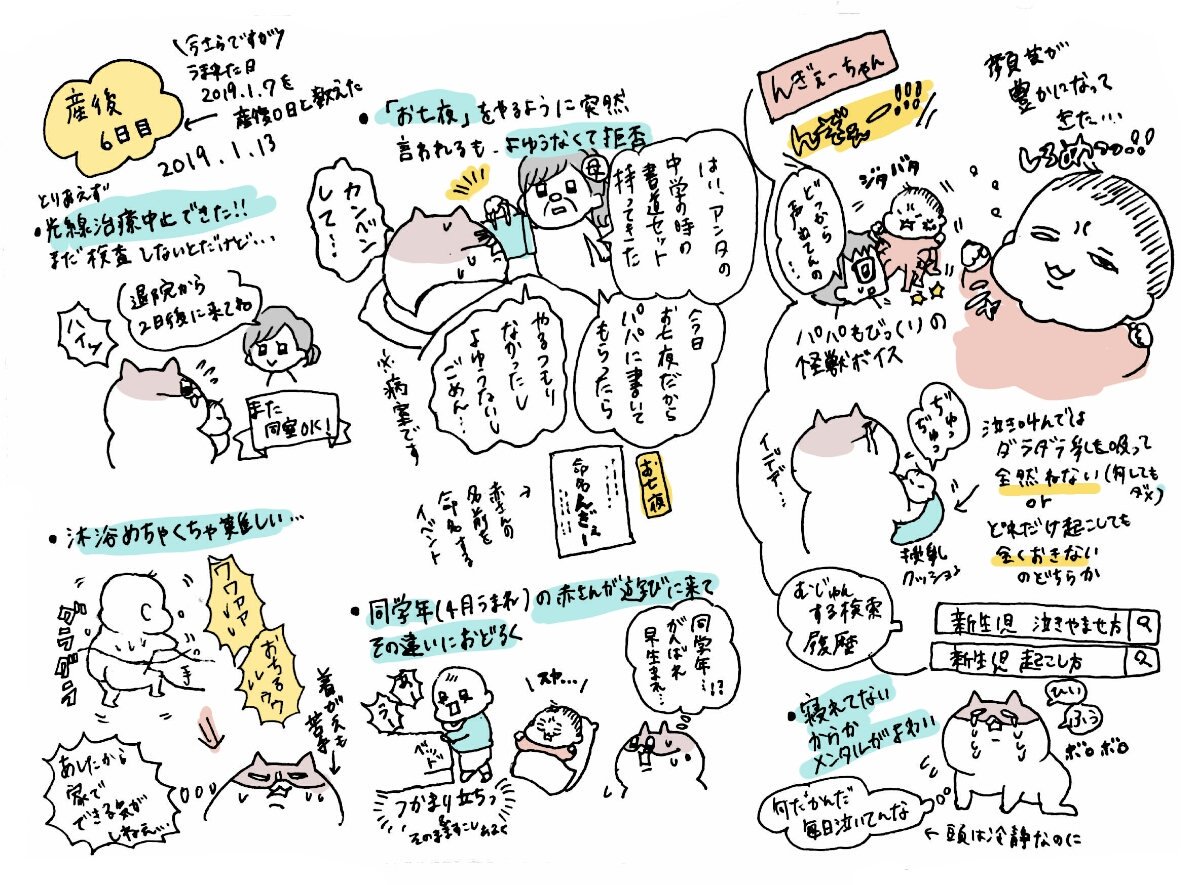 産後
6日目
\今さらですが/
うまれた日
2019.1.7を
産後0日と数えた
2019.1.13
とりあえず
・光線治療中止できた!!
まだ検査しないとだけど…
退院から
2日後に来てね
ハイッ
また
同室OK!
・沐浴めちゃくちゃ難しい…
ワァァァ
おちるゥゥ
着がえも
苦手
あしたから
家で
できる気が
しねぇ…
・「お七夜」をやるように突然
言われるも、よゆうなくて拒否
カンベン
して…
母
はい、アンタの
中学の時の
書道セット
持ってきた
今日
お七夜だから
パパに書いて
もらったら
やるつもり
なかったし
よゆうないし
ごめん…
※病室です
お七夜
命名んぎぇー
赤さんの
名前を
命名する
イベント
・同学年(4月うまれ)の赤さんが遊びに来て
その違いにおどろく
あ
う
ベッド
つかまり立ちっ
&
そのまますこし歩く
\スヤ…/
同学年…!?
がんばれ
早生まれ…
んぎぇーちゃん
んぎぇー!!!
ジタバタ
どっから
声でてんの
…
パパもびっくりの
怪獣ボイス
顔芸が
豊かになって
きた…
しろめっっ!!
ぢゅっ
ぢゅっ
イデデ…
授乳
クッション
泣き叫んでは
ダラダラ乳を吸って
全然ねない(何しても
ダメ)
or
どれだけ起こしても
全くおきない
のどちらか
むじゅん
する検索
履歴
新生児 泣きやませ方
新生児 起こし方
・寝れてない
からか
メンタルがよわい
ひい
ふう
ボロボロ
何だかんだ
毎日泣いてんな
←頭は冷静なのに